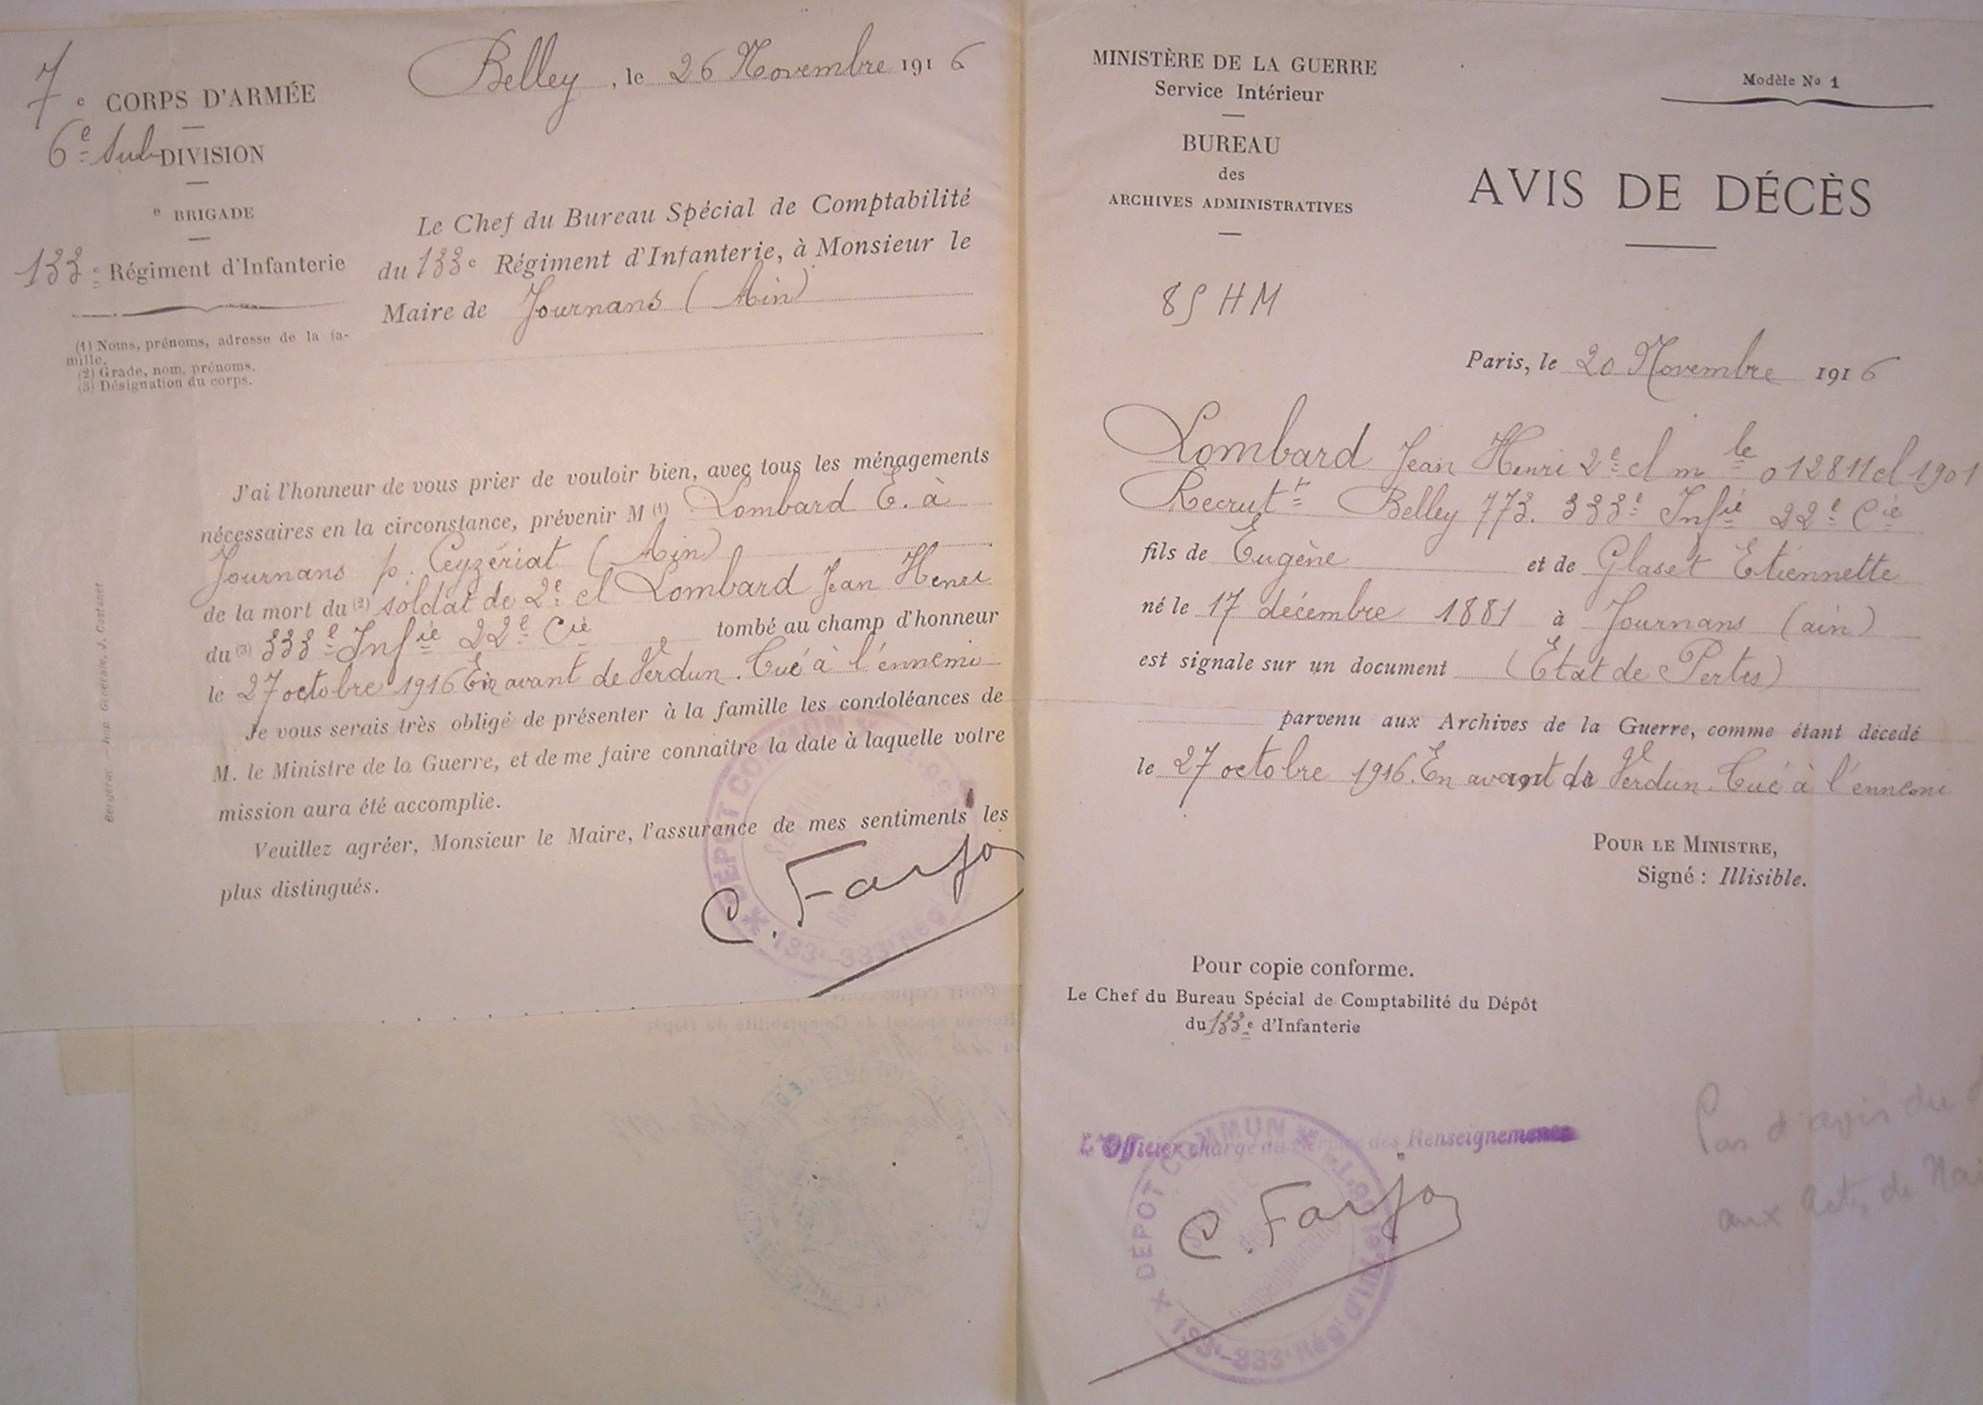 7e CORPS D'ARMÉE
6e Sub DIVISION
e BRIGADE
133e Régiment d'Infanterie
(1) Noms, prénoms, adresse de la fa-
mille.
(2) Grade, nom, prénoms.
(3) Désignation du corps.
Belley, le 26 Novembre 1916
Le Chef du Bureau Spécial de Comptabilité
du 133e Régiment d'Infanterie, à Monsieur le
Maire de Journans (Ain)
J'ai l'honneur de vous prier de vouloir bien, avec tous les ménagements
nécessaires en la circonstance, prévenir M (1) Lombard E. à
Journans p. Ceyzériat (Ain)
de la mort du (2) soldat de 2e cl Lombard Jean Henri
du (3) 333e Infie 22e Cie tombé au champ d'honneur
le 27 octobre 1916 En avant de Verdun. Tué à l'ennemi
Je vous serais très obligé de présenter à la famille les condoléances de
M. le Ministre de la Guerre, et de me faire connaître la date à laquelle votre
mission aura été accomplie.
Veuillez agréer, Monsieur le Maire, l'assurance de mes sentiments les
plus distingués.
C. Farjo
DÉPOT COMMUN
SERVICE
133e-333e Rég
Bergerac — Imp. Générale, J. Castanet
MINISTÈRE DE LA GUERRE
Service Intérieur
BUREAU
des
ARCHIVES ADMINISTRATIVES
85 HM
Modèle No 1
AVIS DE DÉCÈS
Paris, le 20 Novembre 1916
Lombard Jean Henri 2e cl mle 012811 cl 1901
Recrutt Belley 773. 333e Infie 22e Cie
fils de Eugène et de Glaset Etiennette
né le 17 décembre 1881 à Journans (ain)
est signale sur un document (Etat de Pertes)
parvenu aux Archives de la Guerre, comme étant décédé
le 27 octobre 1916. En avant de Verdun. Tué à l'ennemi
POUR LE MINISTRE,
Signé : Illisible.
Pour copie conforme.
Le Chef du Bureau Spécial de Comptabilité du Dépôt
du 133e d'Infanterie
L'Officier chargé du Service des Renseignements
DÉPOT COMMUN
SERVICE
des
Renseignements
133e-333e Régt d'Inf
C. Farjo
Pas d'avis du
aux Act. de Nai